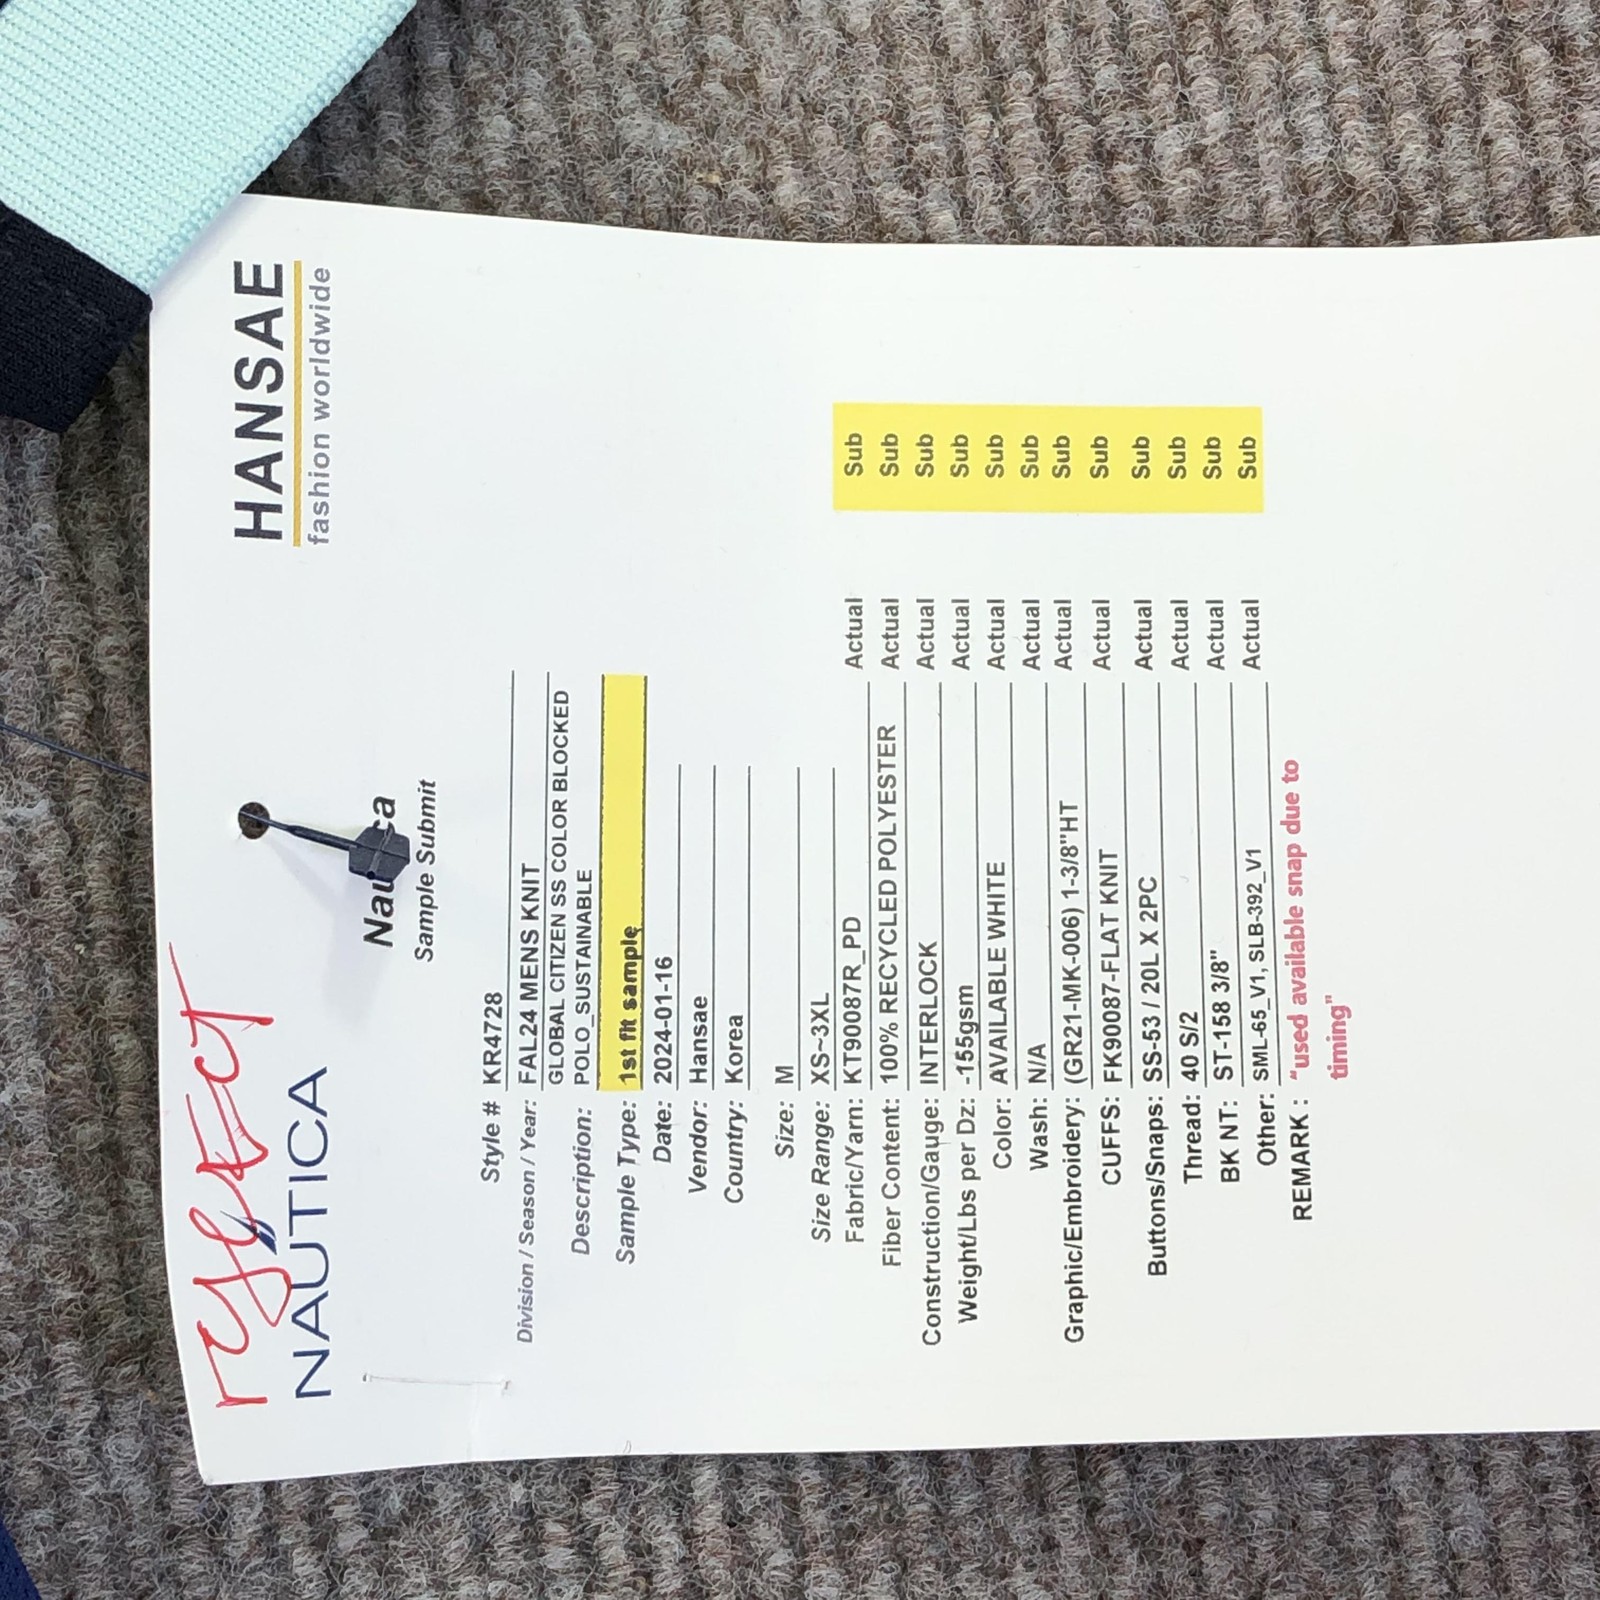 reject
NAUTICA
HANSAE
fashion worldwide
Nautica
Sample Submit
Style # KR4728
Division / Season / Year: FAL24 MENS KNIT
GLOBAL CITIZEN SS COLOR BLOCKED
Description: POLO_SUSTAINABLE
Sample Type: 1st fit sample
Date: 2024-01-16
Vendor: Hansae
Country: Korea
Size: M
Size Range: XS~3XL
Fabric/Yarn: KT90087R_PD Actual Sub
Fiber Content: 100% RECYCLED POLYESTER Actual Sub
Construction/Gauge: INTERLOCK Actual Sub
Weight/Lbs per Dz: -155gsm Actual Sub
Color: AVAILABLE WHITE Actual Sub
Wash: N/A Actual Sub
Graphic/Embroidery: (GR21-MK-006) 1-3/8"HT Actual Sub
CUFFS: FK90087-FLAT KNIT Actual Sub
Buttons/Snaps: SS-53 / 20L X 2PC Actual Sub
Thread: 40 S/2 Actual Sub
BK NT: ST-158 3/8" Actual Sub
Other: SML-65_V1, SLB-392_V1 Actual Sub
REMARK : "used available snap due to
timing"